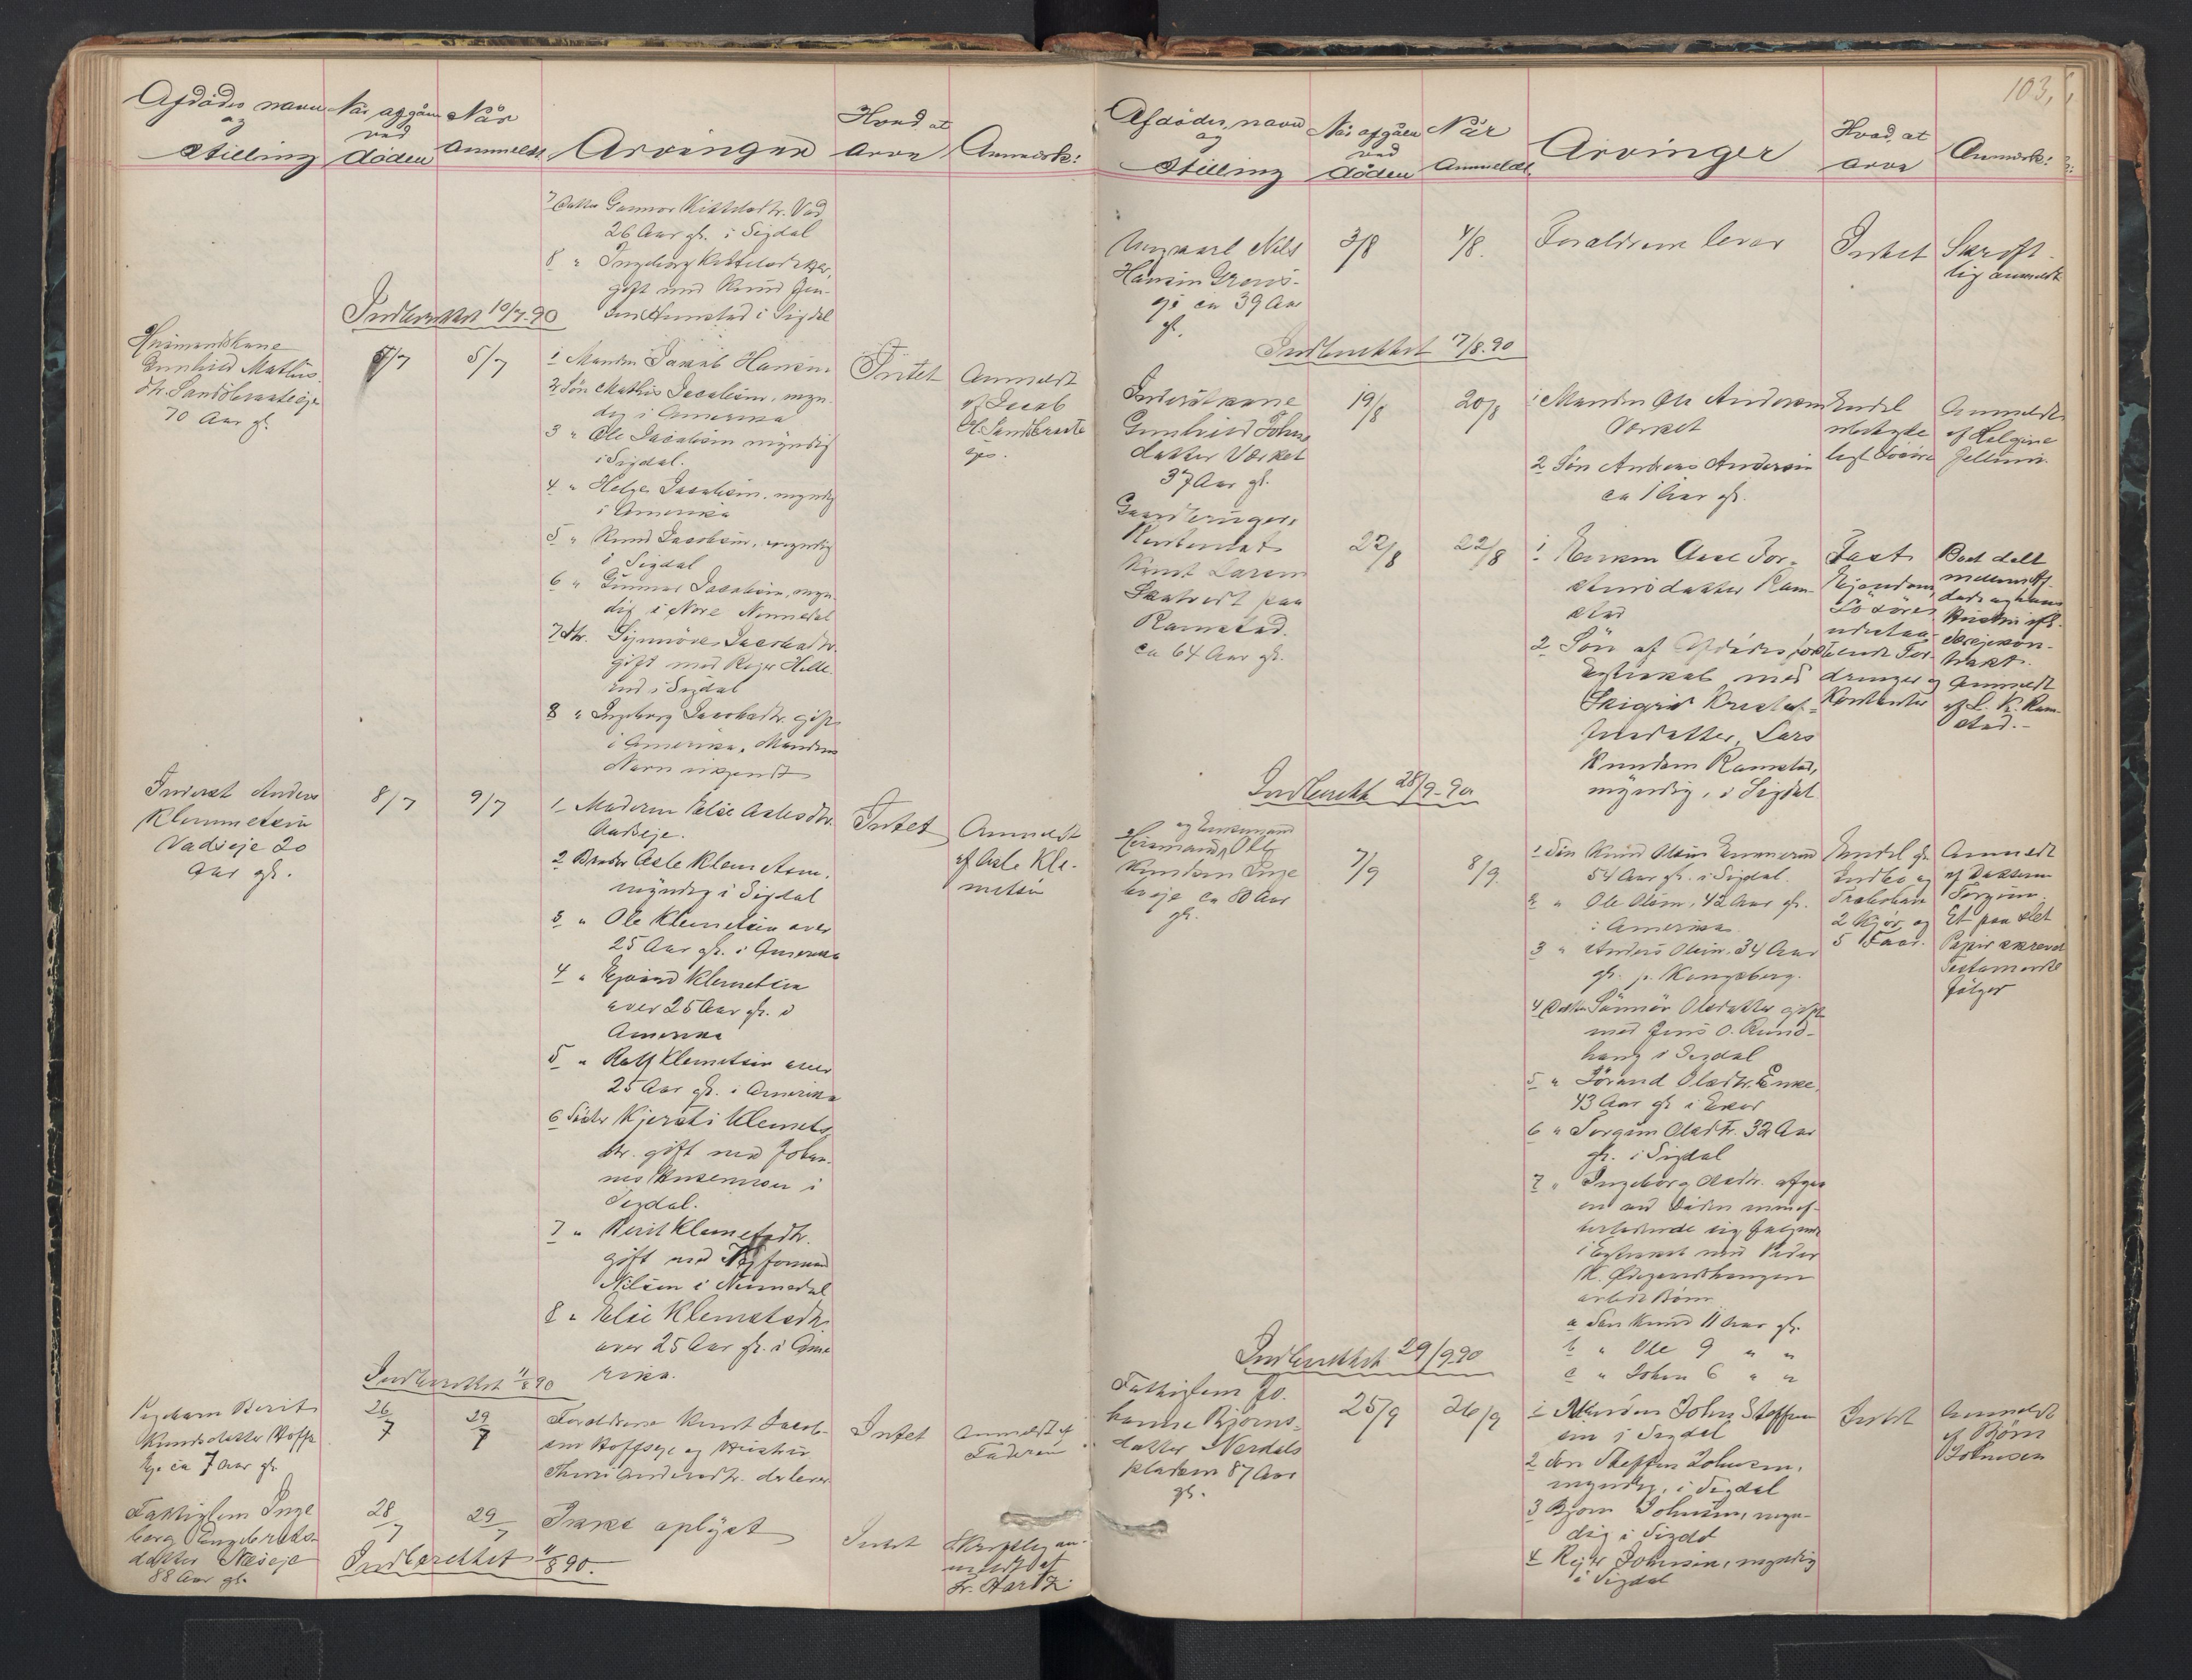 Afdödes navn
og
Stilling
Når afgåen
ved
döden
Når
Anmeldt
Arvinger
Hvad at
arve
Anmærk:
7 Datter Gunnor Kittelsdtr. Vad
26 Aar gl. i Sigdal
8 " Ingeborg Kittelsdtr
gift med Knud Jen-
sen i Sigdal
Indberettet 10/7-90
Husmandskone
Gunhild Mathis-
dtr.
70 Aar gl.
5/7
1 Manden Jakob Hansen
2 Søn Mathis Jacobsen, myn-
dig i Amerika
3 " Ole Jacobsen myndig
i Sigdal.
4 " Helge Jacobsen, myndig
i Amerika
5 " Knud Jacobsen, myndig
i Sigdal
6 " Gunnar Jacobsen, myn-
dig i Nore Nummedal
7 Dtr. Synnöve Jacobsdtr.
gift med Roger Helle-
rud i Sigdal
8 " Ingeborg Jacobsdtr. gift
i Amerika, Mandens
Navn ukjendt
Intet
Anmeldt
af Jacob
Inderst Anders
Klemmetsen
Vadseje 20
Aar gl.
8/7
9/7
1 Moderen Elise Aslesdtr.
2 Broder Asle Klemetsen,
myndig i Sigdal
3 " Ole Klemetsen over
25 Aar gl. i Amerika
4 " Eivind Klemetsen
over 25 Aar gl. i
Amerika
5 " Rolf Klemetsen over
25 Aar gl. i Amerika
6 Söster Kjersti Klemets-
dtr. gift med Johan-
nes i
Sigdal.
7 " Berit Klemetsdtr.
gift med
Nilsen i Numedal
8 " Elise Klemetsdtr.
over 25 Aar gl. i Ame-
rika.
Intet
Anmeldt
af Asle Kle-
metsen
Indberettet 11/8 90
Pigebarn Berit
Knudsdatter Hoffs
Eje ca 7 Aar gl.
26/7
29/7
Forældrene Knut Jacob-
sen Hoffseje og Hustru
Thuri Andersdtr. der lever
Intet
Anmeldt af
Faderen
Fattiglem Inge-
borg Engebrets-
datter Næseje
88 Aar gl.
28/7
29/7
Ikke oplyst
Intet
Skriftlig an-
meldt af
Fr. Hartz
Indberettet 11/8 90.
103,
Afdödes navn
og
Stilling
Når afgåen
ved
döden
Når
Anmeldt
Arvinger
Hvad at
arve
Anmærk:
Ungkarl Nils
Hansen Grøns-
eje ca 39 Aar
gl.
3/8
4/8.
Forældrene lever
Intet
Skrift-
lig anmeldt
Indberettet 17/8.90
Inderstkone
Gunhild Johns-
datter Værket
37 Aar gl.
19/8
20/8
1 Manden Ole Andersen
Værket
2 Søn Andreas Andersen
ca 1 Aar gl.
Endel
ubetyde-
ligt Løsöre
Anmeldt
af Helgine
Gaardbruger,
Knut Larsen
paa
Ramstad.
ca 64 Aar gl.
22/8
22/8
1 Enken Aase Tor-
stensdatter Ram-
stad
2 Søn af Afdödes første
Egteskab med
Lars
Knudsen Ramstad,
myndig, i Sigdal
Fast
Ejendom,
Lösöre,
udestaa-
ende For-
dringer og
Kontanter
Boet delt
mellem Af-
döde og hans
Hustru ifl.
Skejekon-
trakt.
Anmeldt
af L. K. Ram-
stad.-
Indberettet 28/9-90
og Enkemand
Husmand Ole
Knudsen Inge-
ca 80 Aar
gl.
7/9
8/9.
1 Søn Knud Olsen
54 Aar gl. i Sigdal.
2 " Ole Olsen, 42 Aar gl.
i Amerika
3 " Anders Olsen, 34 Aar
gl. p. Kongsberg.
4 Datter Sönnöv Olsdatter gift
med Jens O. Rund-
haug i Sigdal
5 " Jørand Olsdtr. Enke,
43 Aar gl. i Eker
6 " Torgun Olsdtr. 32 Aar
gl. i Sigdal
7 " Ingeborg Olsdtr. afgaa-
en ved Döden med ef-
terladende sig følgende
i Egteskab med Peder
K.
avlede Børn
a Søn Knud 11 Aar gl.
b " Ole 9 " "
c " Johan 6 " "
Endel gl.
Indbo og
2 Kjör og
5 Faar.
Anmeldt
af Datteren
Torgun.
Et paa slet
Papir skrevet
Testamente
fölger
Indberettet 29/9 90
Fattiglem Jo-
hanne Bjørns-
datter Nordals-
pladsen 87 Aar
gl.
25/9
26/9
1 Manden John Steffen-
sen i Sigdal
2 Søn Steffen Johnsen,
myndig, i Sigdal
3 Bjørn Johnsen, myn-
dig i Sigdal
4 Johnsen, myndig
i Sigdal
Intet
Anmeldt
af Björn
Johnsen